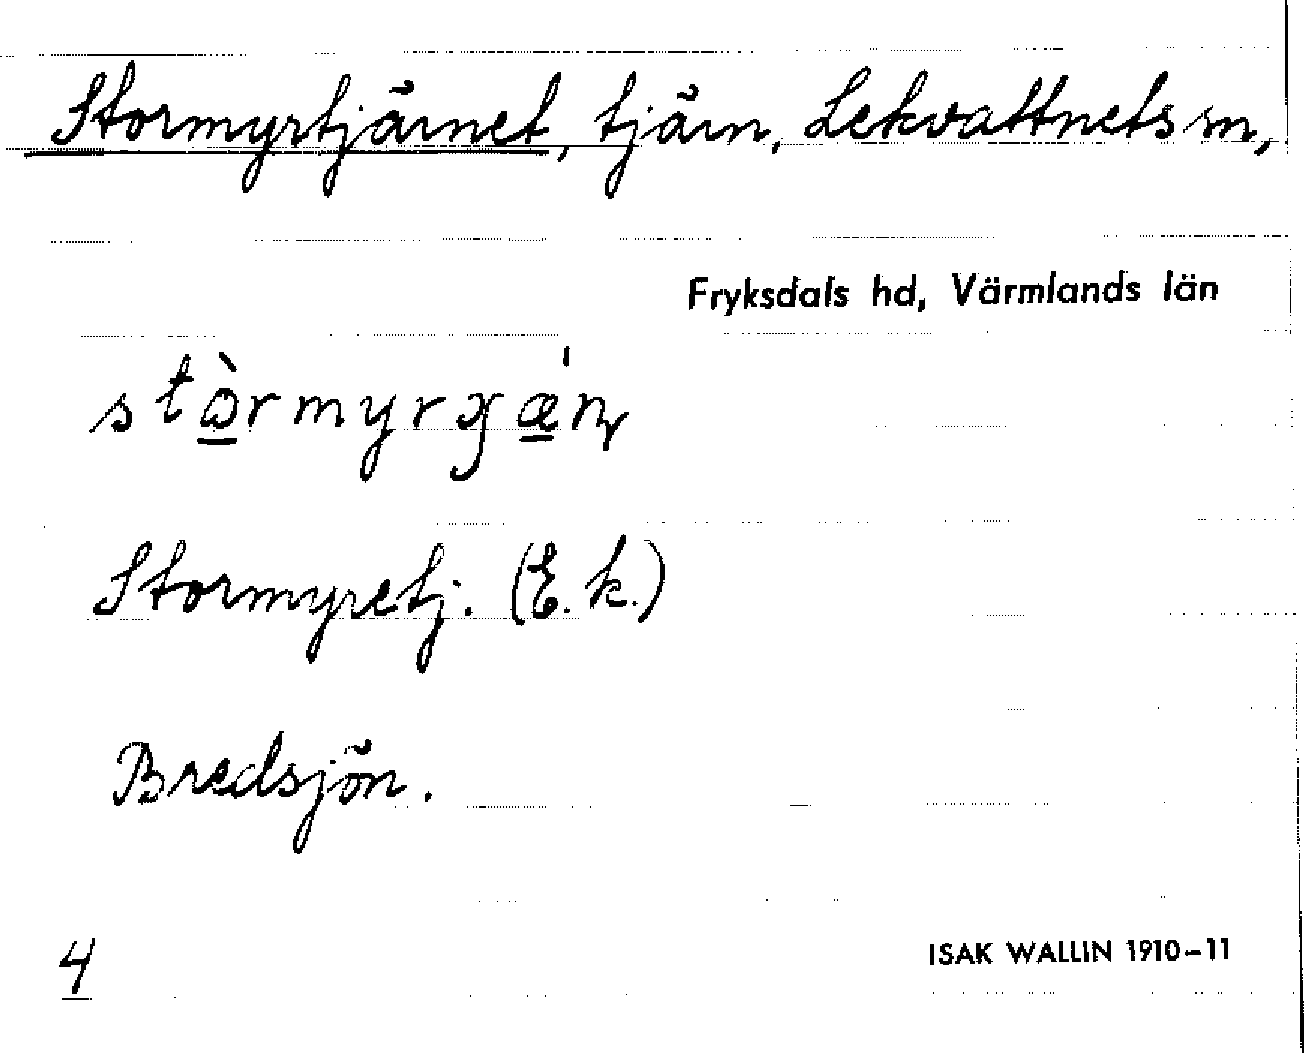 Stormyrtjärnet, tjärn, Lekvattnets sn,
Fryksdals hd, Värmlands län
Stormyretj. (E. k.)
Bredsjön.
4
ISAK WALLIN 1910–11